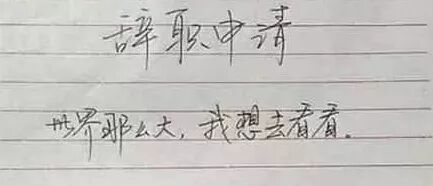 辞职申请
世界那么大，我想去看看.